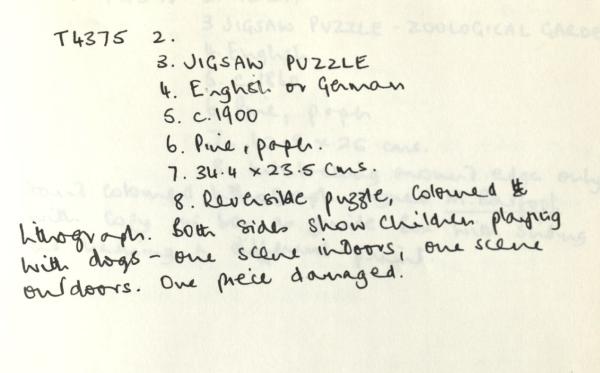 T4375 2.
3. JIGSAW PUZZLE
4. English or German
5. c.1900
6. Pine, paper.
7. 34.4 x 23.5 cms.
8. Reversible puzzle, coloured
lithograph. Both sides show children playing
with dogs - one scene indoors, one scene
outdoors. One peice damaged.
3 JIGSAW PUZZLE - ZOOLOGICAL GARDE